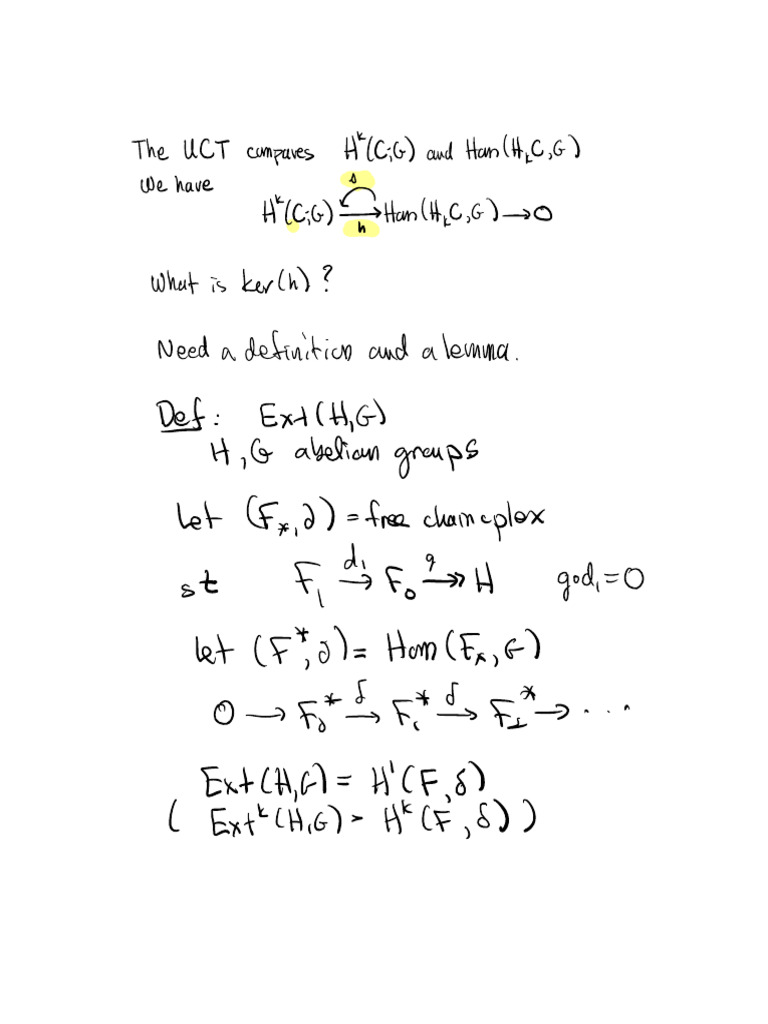 The UCT compares H^k(C;G) and Hom(H_kC,G)
We have
s
H^k(C;G) ⟶ Hom(H_kC,G) ⟶ 0
h
What is ker(h)?
Need a definition and a lemma.
Def: Ext(H,G)
H, G abelian groups
let (F_*,∂) = free chain cplex
st F_1 →^{d_1} F_0 →^{q}↠ H god_1 = 0
let (F^*,∂) = Hom(F_*,G)
0 ⟶ F_0^* →^δ F_1^* →^δ F_2^* ⟶ ...
Ext(H,G) = H^1(F,δ)
( Ext^k(H,G) = H^k(F,δ) )